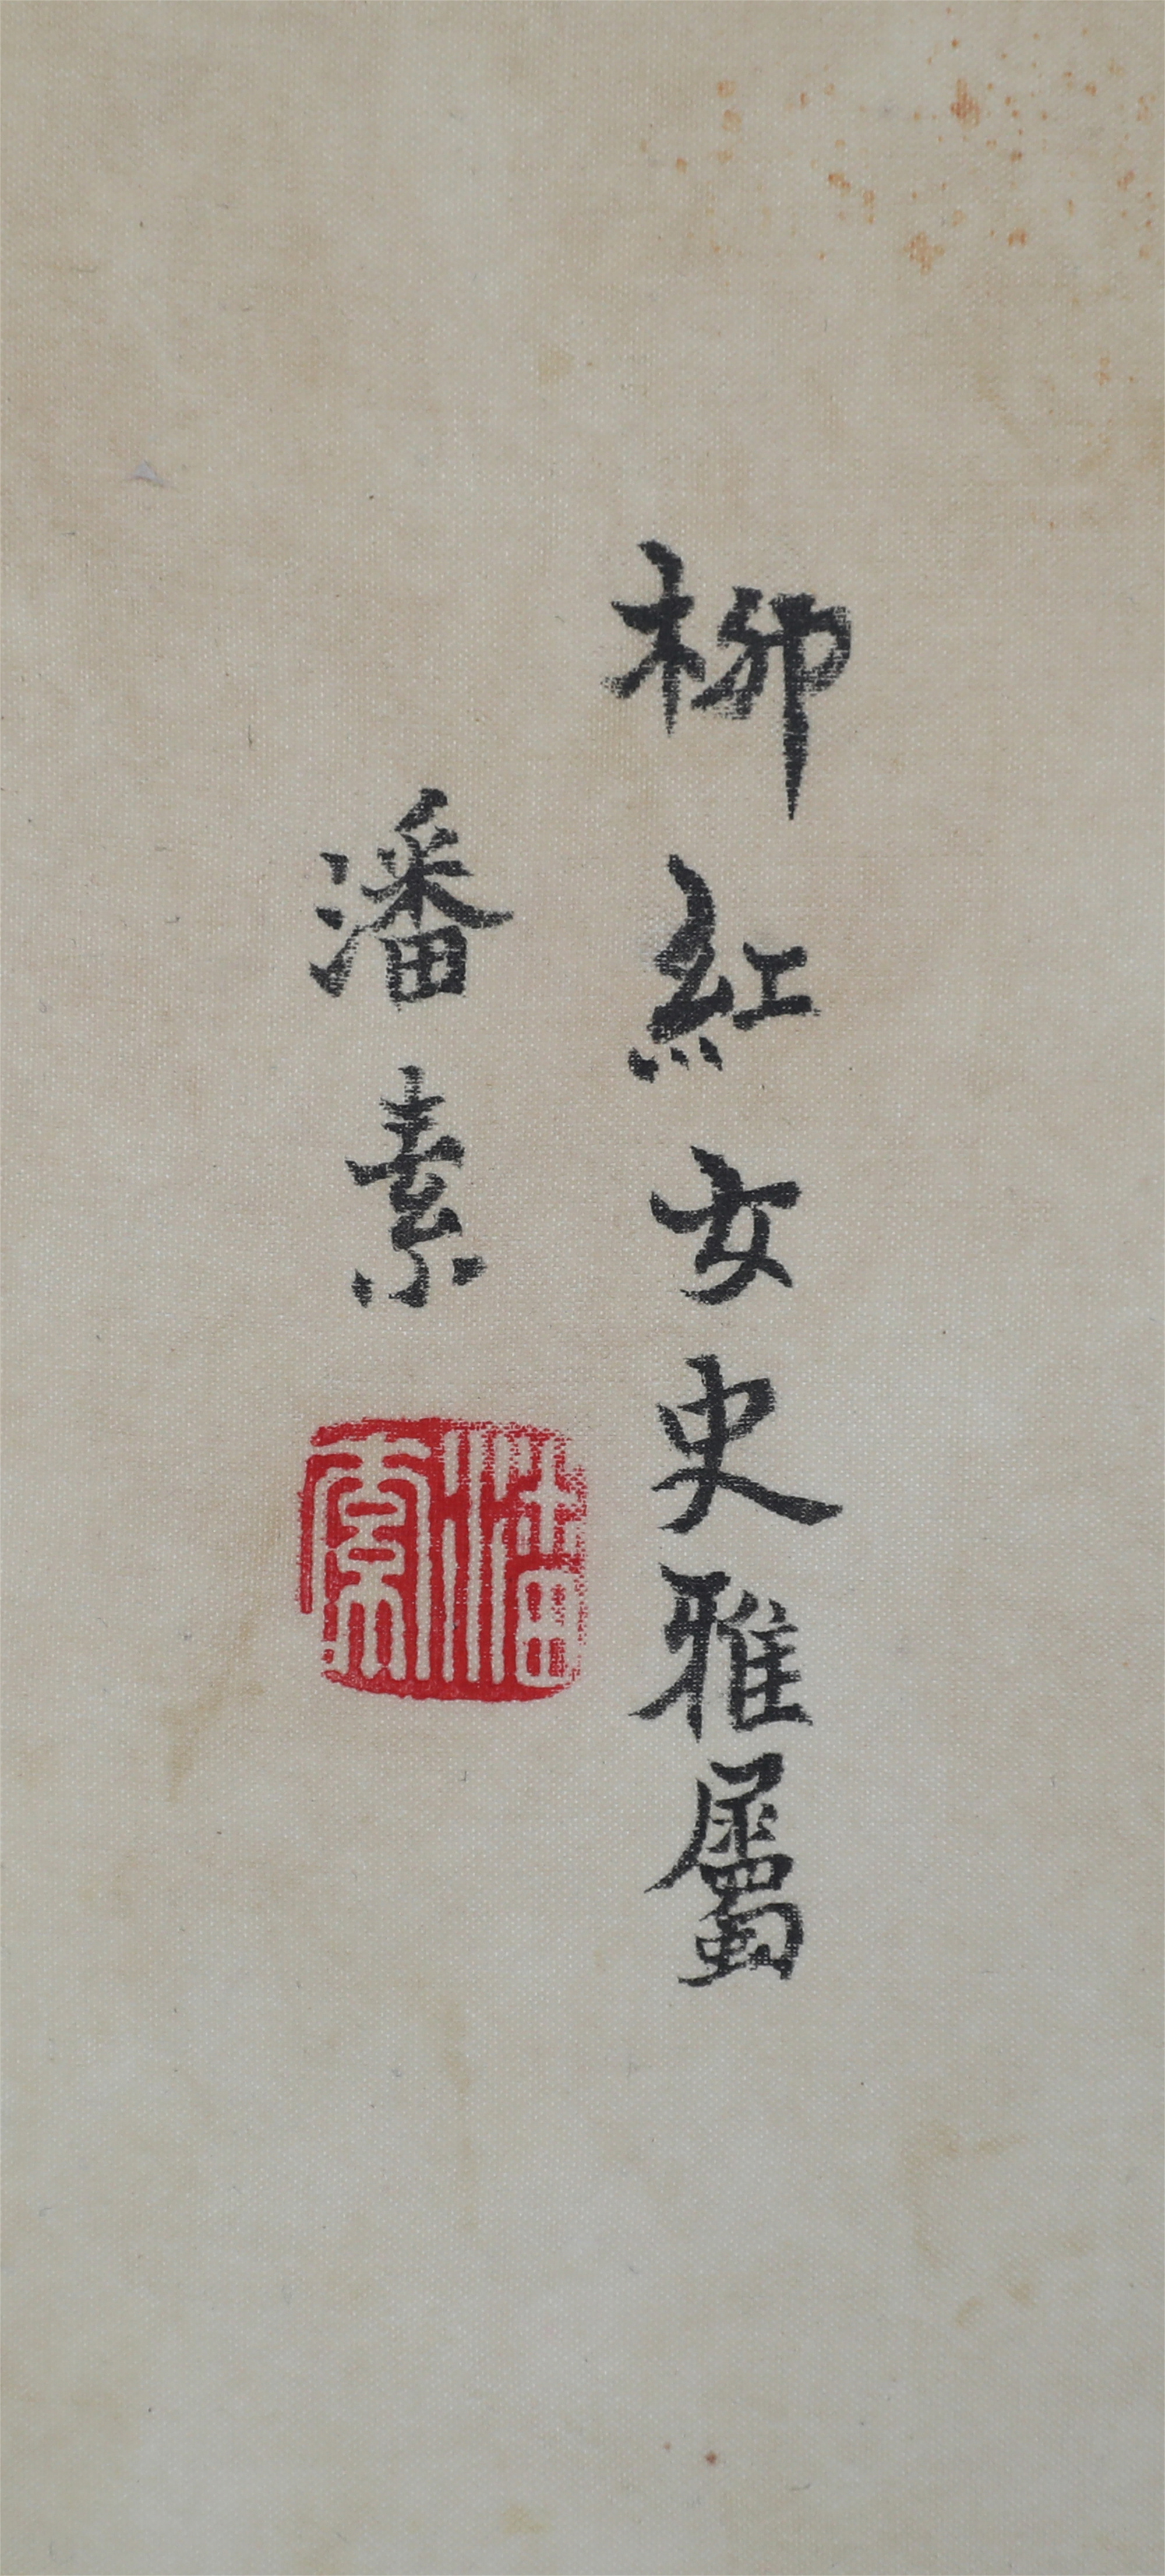 柳紅女史雅屬
潘素
潘素